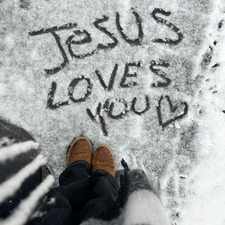 Jesus
LOVES
YOU♡